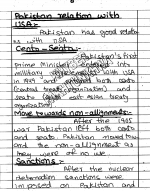 Pakistan relation with
USA:-
Pakistan has good relation
as with USA
Cento - Sento:-
Pakistan's first
prime Minister entered into
military with USA
in 1954 and both cento
(central treaty organization) and
sento east asian treaty
organization
Move towards non-alignment:-
After the 1965
war Pakistan left both cento
and seato Pakistan moved
and the non-alignment as
they were of no use
Sanctions:-
After the nuclear
detonation sanctions were
imposed on Pakistan and